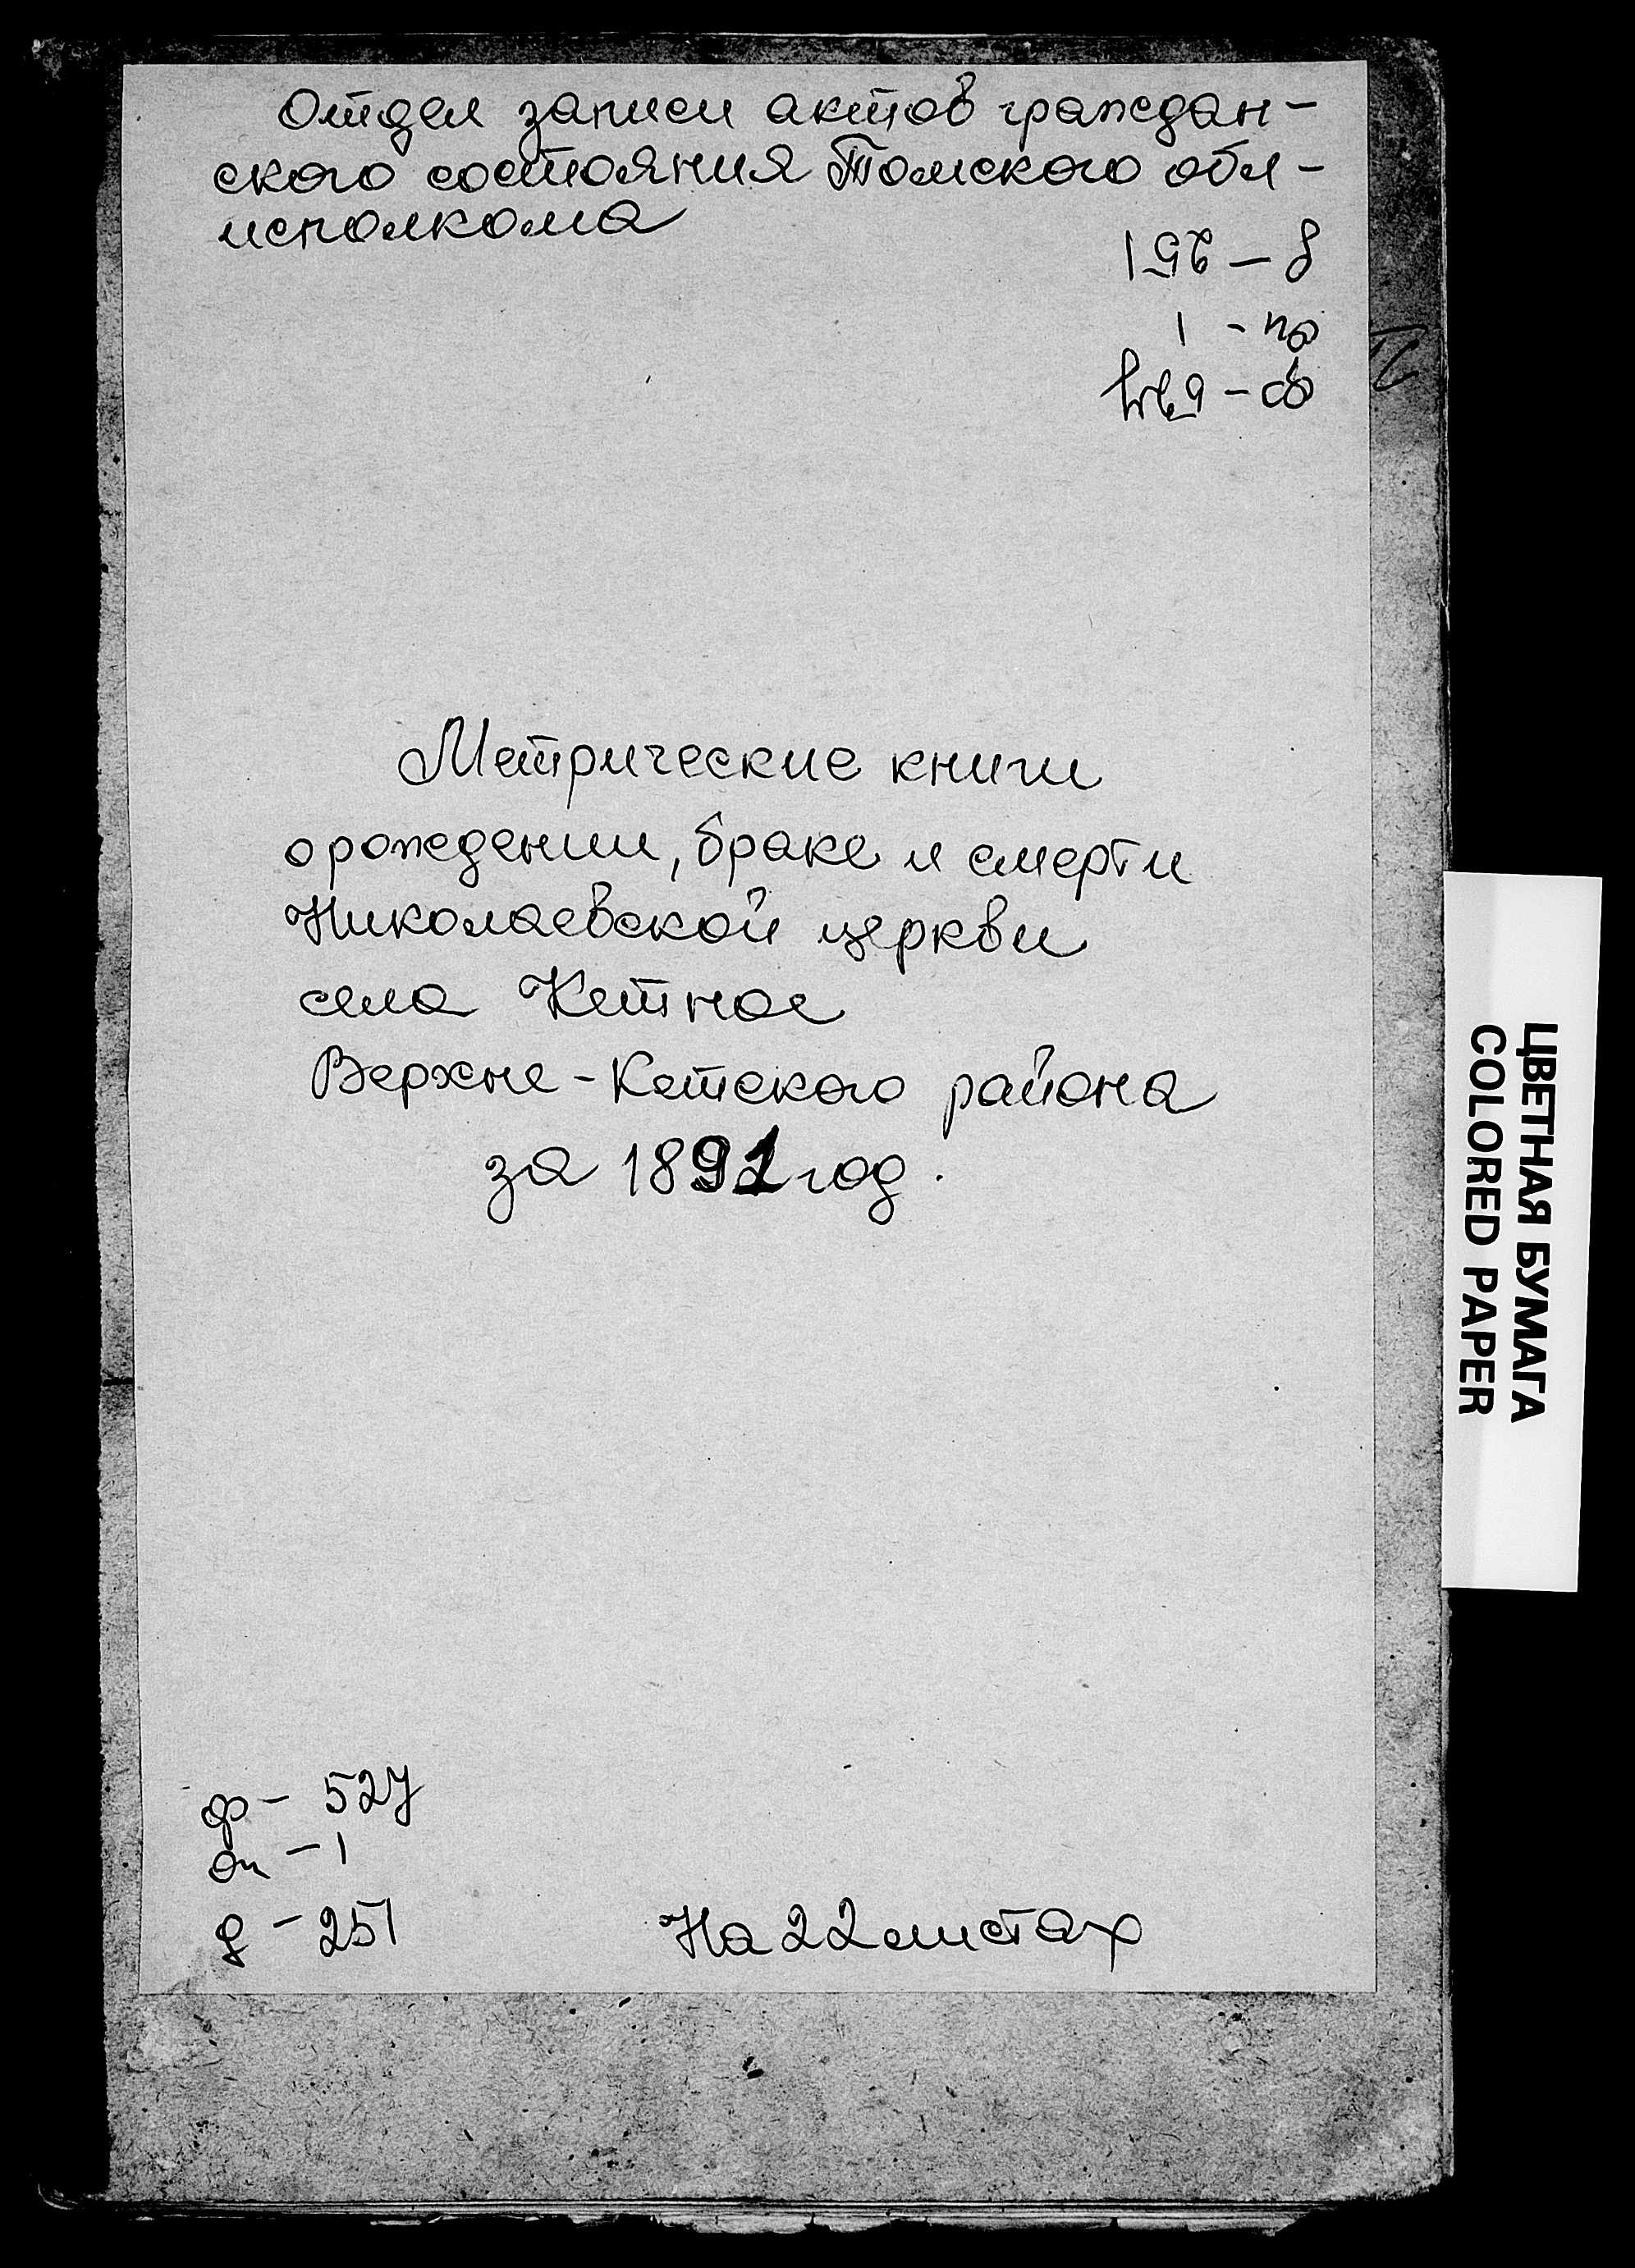 Отдел записи актов граждан-
ского состояния Томского обл-
исполкома
д - 251
оп - 1
ф -
Метрические книги
о рождении, браке и смерти
Николаевской церкви
села Кетное
Верхне-Кетского района
за 1891 год.
ф - 527
оп - 1
д - 251
На 22 листах
ЦВЕТНАЯ БУМАГА
COLORED PAPER